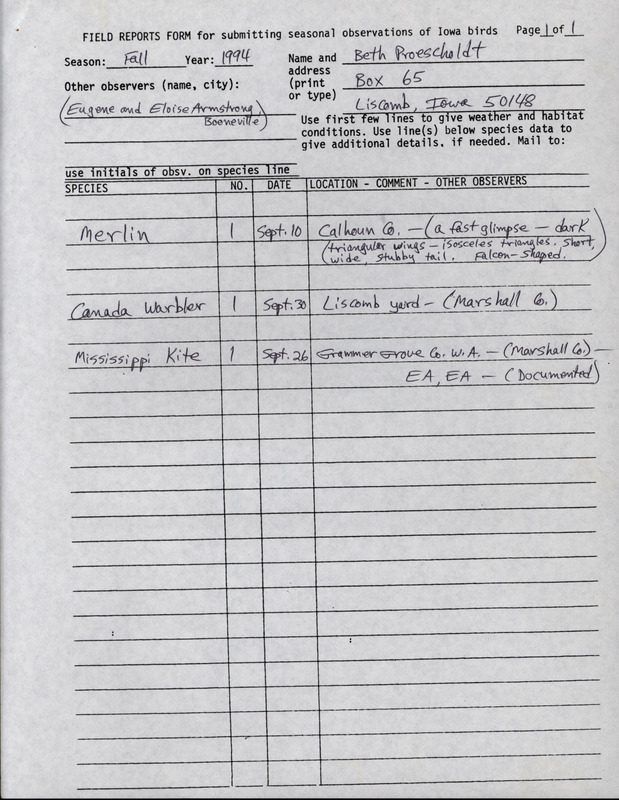 FIELD REPORTS FORM for submitting seasonal observations of Iowa birds Page 1 of 1
Season: Fall Year: 1994
Name and address (print or type)
Beth Proescholdt
Box 65
Liscomb, Iowa 50148
Other observers (name, city):
(Eugene and Eloise Armstrong
Booneville)
Use first few lines to give weather and habitat
conditions. Use line(s) below species data to
give additional details, if needed. Mail to:
use initials of obsv. on species line
SPECIES NO. DATE LOCATION - COMMENT - OTHER OBSERVERS
Merlin 1 Sept. 10 Calhoun Co. — (a fast glimpse — dark
triangular wings — isosceles triangles. Short,
wide, stubby tail. Falcon-shaped.)
Canada Warbler 1 Sept. 30 Liscomb yard — (Marshall Co.)
Mississippi Kite 1 Sept. 26 Grammer Grove Co. W.A. — (Marshall Co.) —
EA, EA — (Documented)